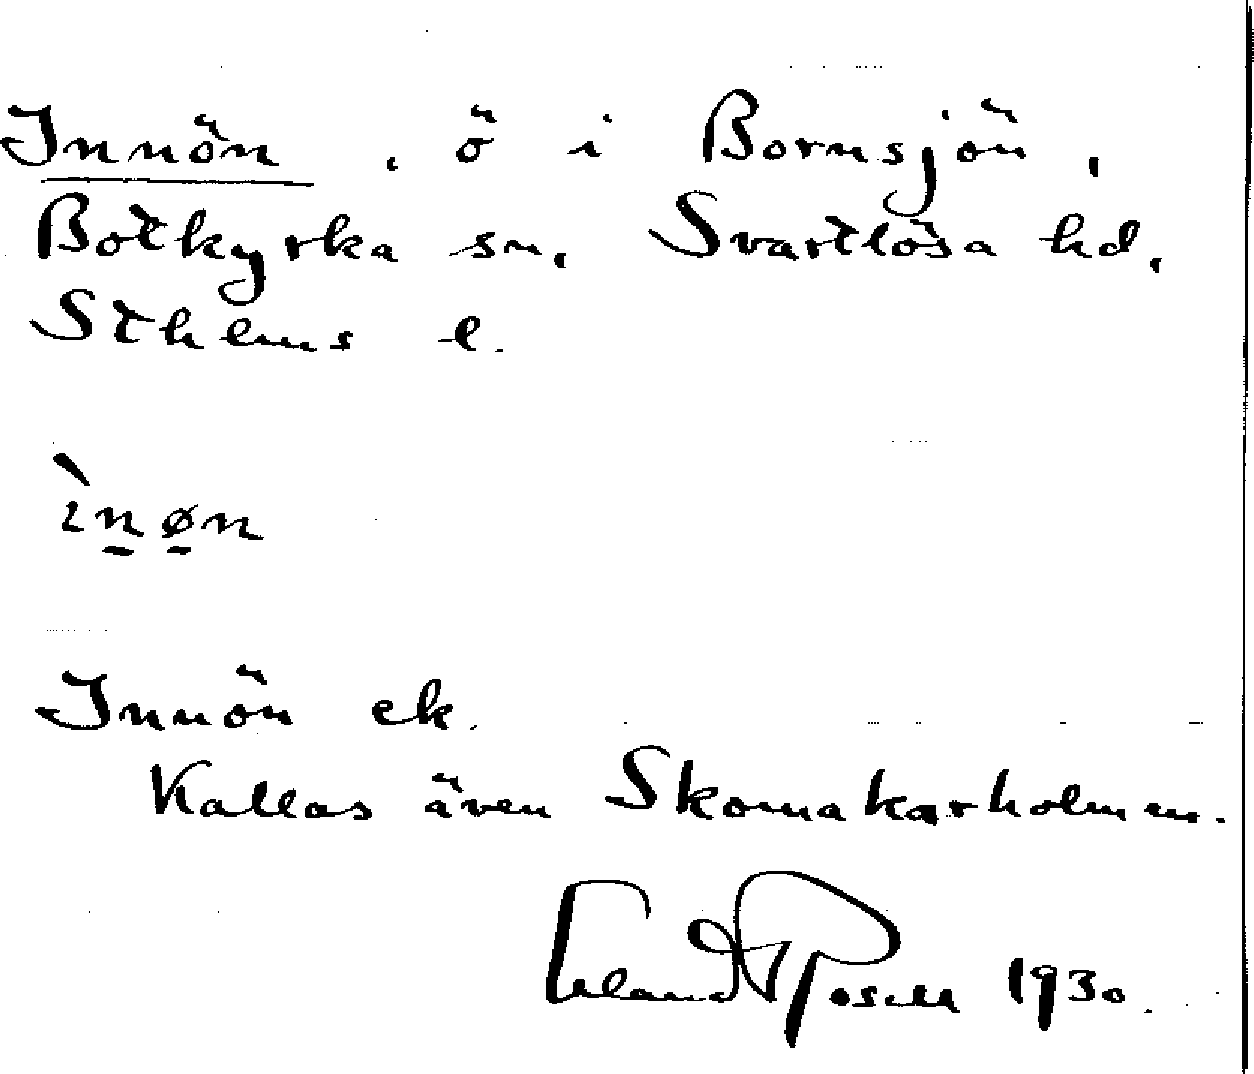 Innön, ö i Bornsjön,
Botkyrka sn, Svartlösa hd,
Sthlms l.
ìn̲ø̲n
Innön ek.
Kallas även Skomakarholmen.
Erland Rosell 1930.